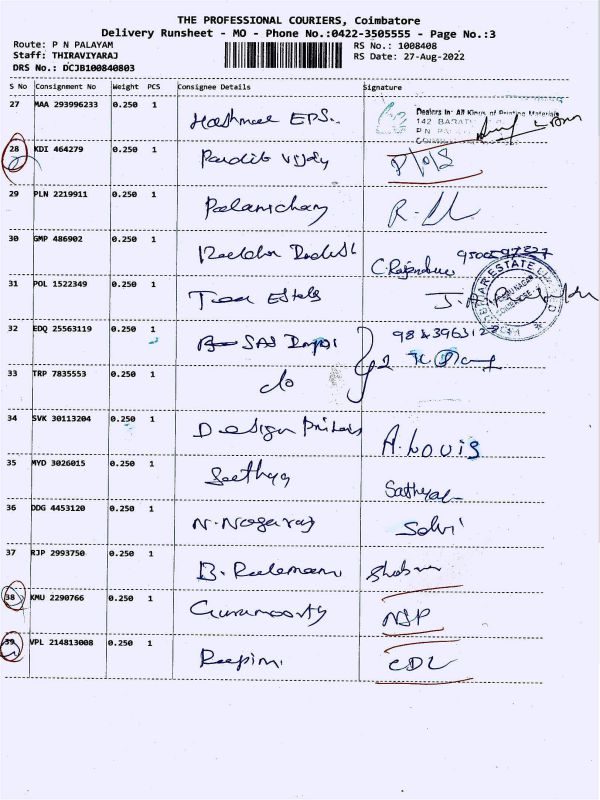 THE PROFESSIONAL COURIERS, Coimbatore
Delivery Runsheet - MO - Phone No.:0422-3505555 - Page No.:3
Route: P N PALAYAM RS No.: 1008408
Staff: THIRAVIYARAJ RS Date: 27-Aug-2022
DRS No.: DCJB100840803
S No Consignment No Weight PCS Consignee Details Signature
27 MAA 293996233 0.250 1 EPS.
Dealers in: All Kinds of Printing Materials
142
P N
28 KDI 464279 0.250 1 Pandit Vijay
29 PLN 2219911 0.250 1 Palanichamy
30 GMP 486902 0.250 1
C. Rajendran
31 POL 1522349 0.250 1 J.
32 EDQ 25563119 0.250 1 SAS
33 TRP 7835553 0.250 1 do
34 SVK 30113204 0.250 1 Design Printers A. Louis
35 MYD 3026015 0.250 1 Sathya Sathya
36 DDG 4453120 0.250 1 N. Nagaraj Selvi
37 RJP 2993750 0.250 1 B.
38 KMU 2290766 0.250 1 Gurumoorty NSP
39 VPL 214813008 0.250 1 CDL